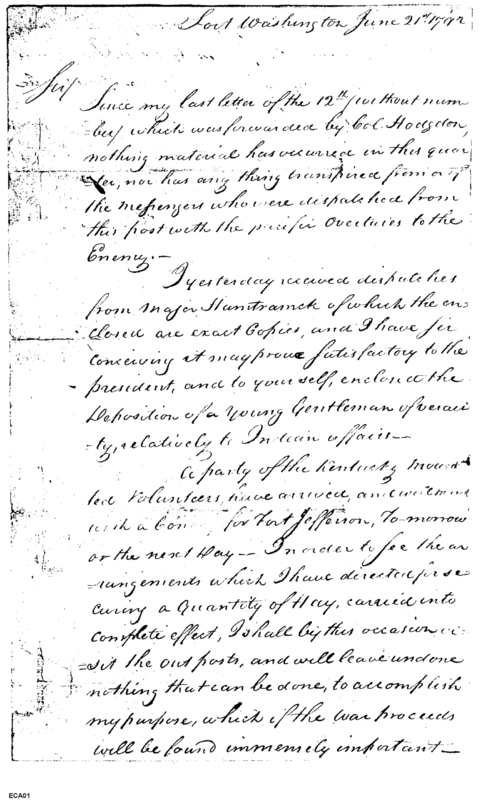 Fort Washington June 21st 1792
Sir
Since my last letter of the 12th (without num
ber) which was forwarded by Col. Hodgdon,
nothing material has occurred in this quar
ter, nor has any thing transpired from any of
the Messengers who were dispatched from
this post with the pacific Overtures to the
Enemy.—
I yesterday received dispatches
from Major Hamtramck of which the en
closed are exact Copies, and I have Sir
conceiving it may prove satisfactory to the
president, and to yourself, enclosed the
Deposition of a Young Gentleman of veraci
-ty, relatively to Indian affairs—
A party of the Kentucky Moun
ted Volunteers, have arrived, and will
with a for Fort Jefferson, To-morrow
or the next Day— In order to see the ar
-rangements which I have directed for se
curing a Quantity of Hay, carried into
complete effect, I shall by this occasion vi
-sit the out posts, and will leave undone
nothing that can be done, to accomplish
my purpose, which if the war proceeds
will be found immensely important—
ECA01